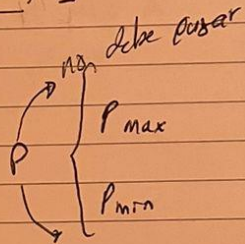 no debe pasar
P max
P
P min